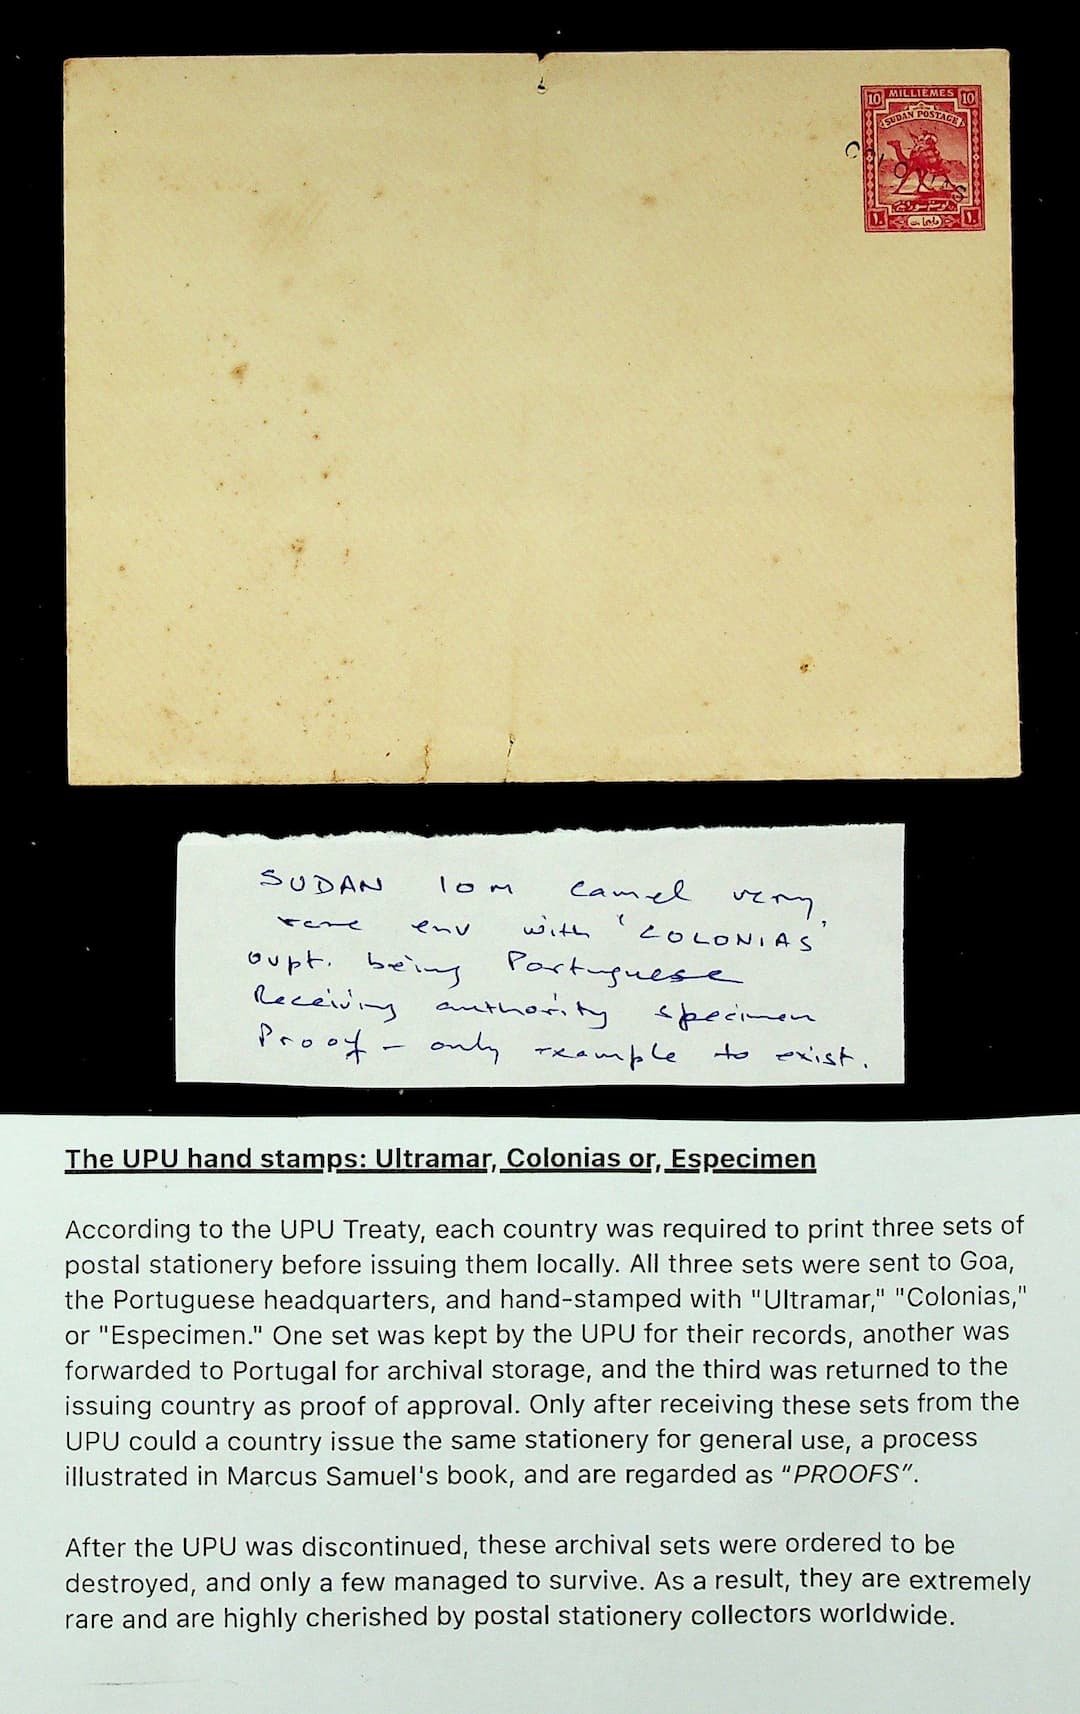 10 MILLIEMES 10
SUDAN POSTAGE
COLONIAS
١٠ ١٠
SUDAN 10m camel very
rare env with 'COLONIAS'
ovpt. being Portuguese
Receiving authority specimen
Proof – only example to exist.
The UPU hand stamps: Ultramar, Colonias or, Especimen
According to the UPU Treaty, each country was required to print three sets of
postal stationery before issuing them locally. All three sets were sent to Goa,
the Portuguese headquarters, and hand-stamped with "Ultramar," "Colonias,"
or "Especimen." One set was kept by the UPU for their records, another was
forwarded to Portugal for archival storage, and the third was returned to the
issuing country as proof of approval. Only after receiving these sets from the
UPU could a country issue the same stationery for general use, a process
illustrated in Marcus Samuel's book, and are regarded as "PROOFS".
After the UPU was discontinued, these archival sets were ordered to be
destroyed, and only a few managed to survive. As a result, they are extremely
rare and are highly cherished by postal stationery collectors worldwide.